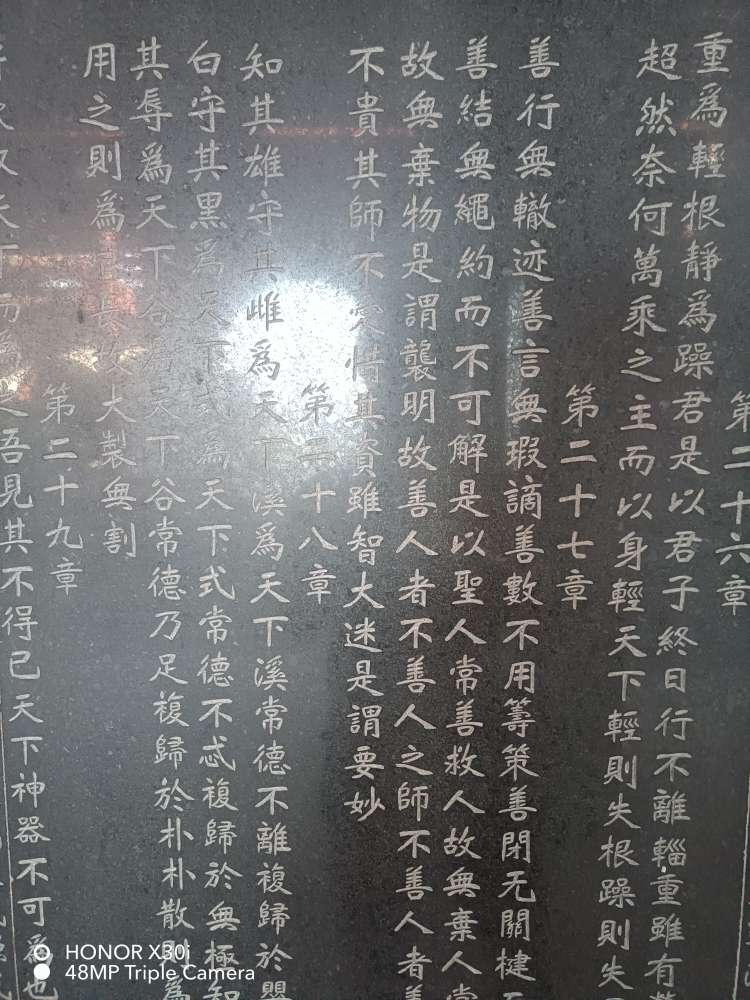 第二十六章
重為輕根靜為躁君是以君子終日行不離輜重雖有
超然奈何萬乘之主而以身輕天下輕則失根躁則失
第二十七章
善行無轍迹善言無瑕謫善數不用籌策善閉无關楗
善結無繩約而不可解是以聖人常善救人故無棄人常
故無棄物是謂襲明故善人者不善人之師不善人者善
不貴其師不愛惜其資雖智大迷是謂要妙
第二十八章
知其雄守其雌為天下溪為天下溪常德不離複歸於嬰
白守其黑為天下式為天下式常德不忒複歸於無極知
其辱為天下谷為天下谷常德乃足複歸於朴朴散為
用之則為官長故大製無割
第二十九章
取天下而為之吾見其不得已天下神器不可為也
HONOR X30i
48MP Triple Camera